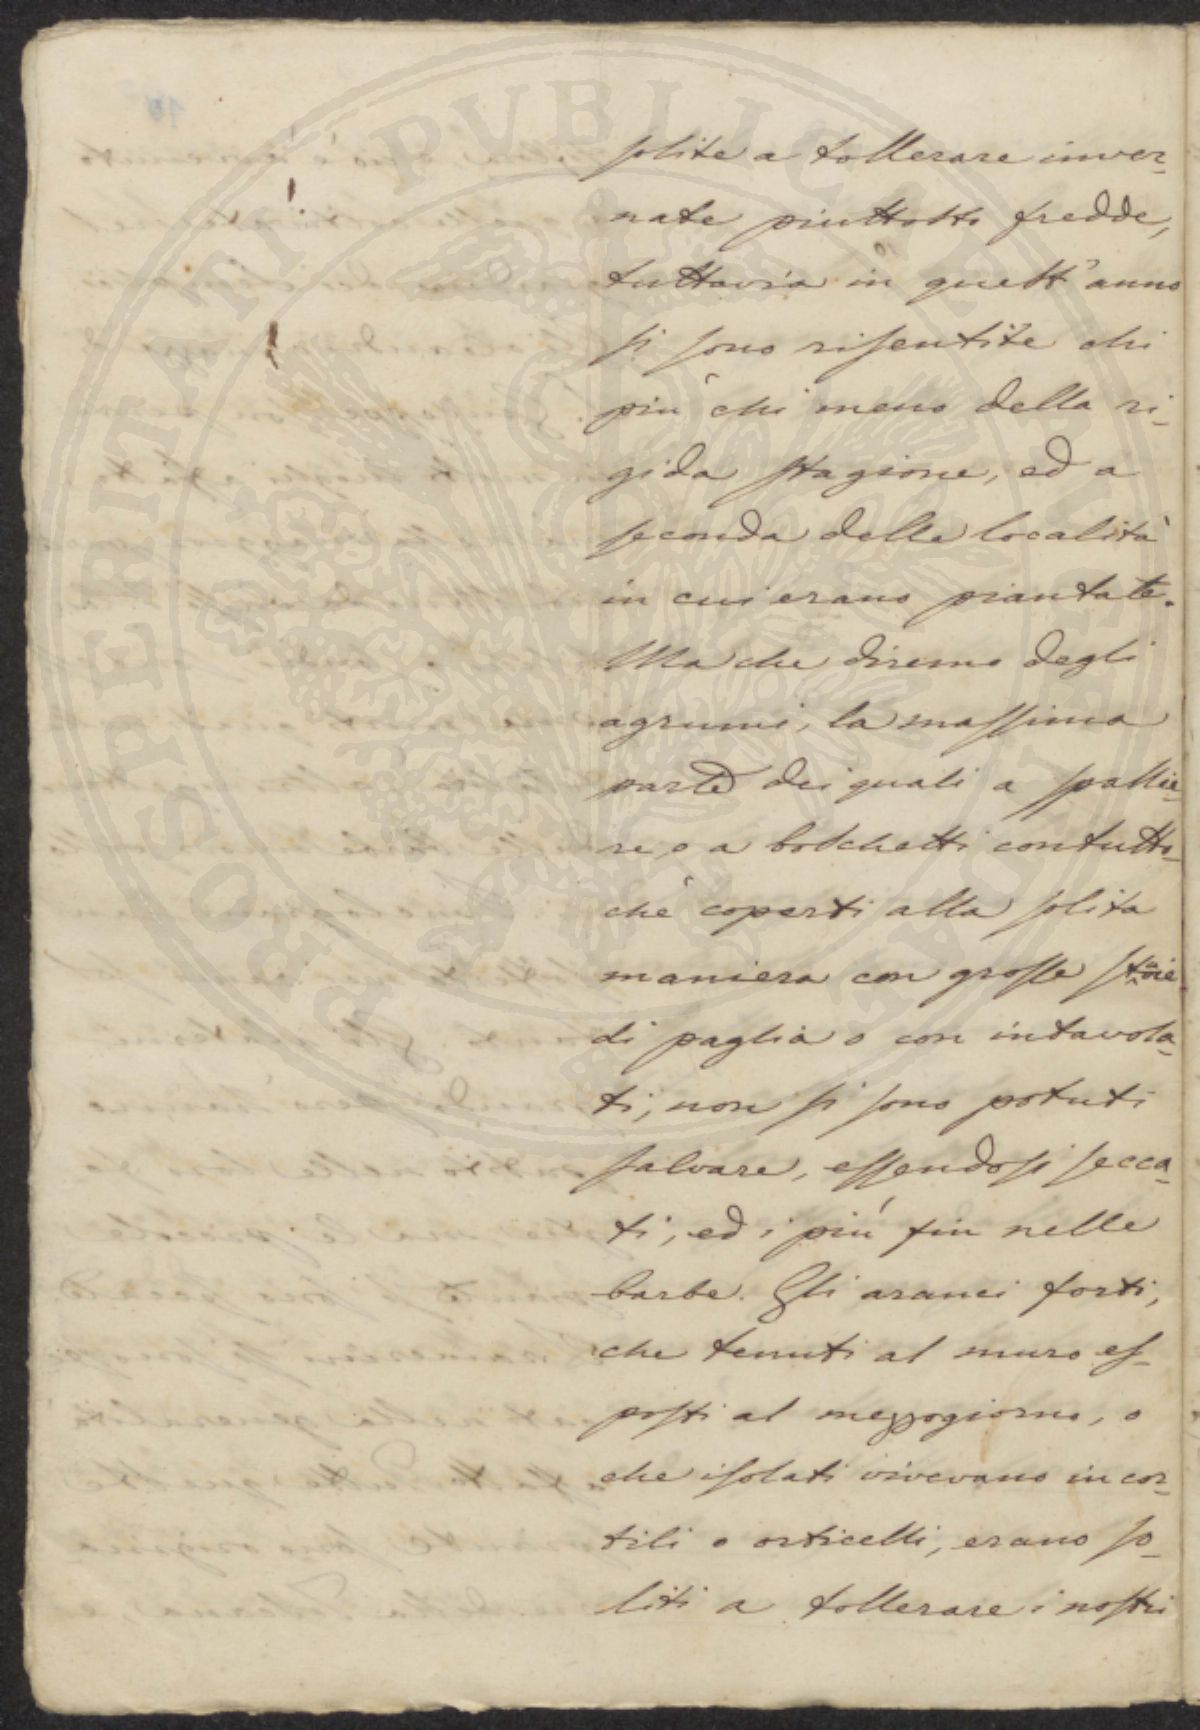 solite a tollerare inver-
nate piuttosto fredde,
tuttavia in quest'anno
si sono risentite chi
più chi meno della ri-
gida stagione, ed a
seconda delle località
in cui erano piantate.
Ma che diremo degli
agrumi, la massima
parte dei quali a spallie-
re, o a boschetti contutto-
chè coperti alla solita
maniera con grosse
di paglia o con intavola-
ti, non si sono potuti
salvare, essendosi secca-
ti, ed i più fin nelle
barbe. Gli aranci forti,
che tenuti al muro es-
posti al mezzogiorno, o
che isolati vivevano in cor-
tili o orticelli, erano so-
liti a tollerare i nostri
PROSPERITATI PUBLICAE AUGENDAE